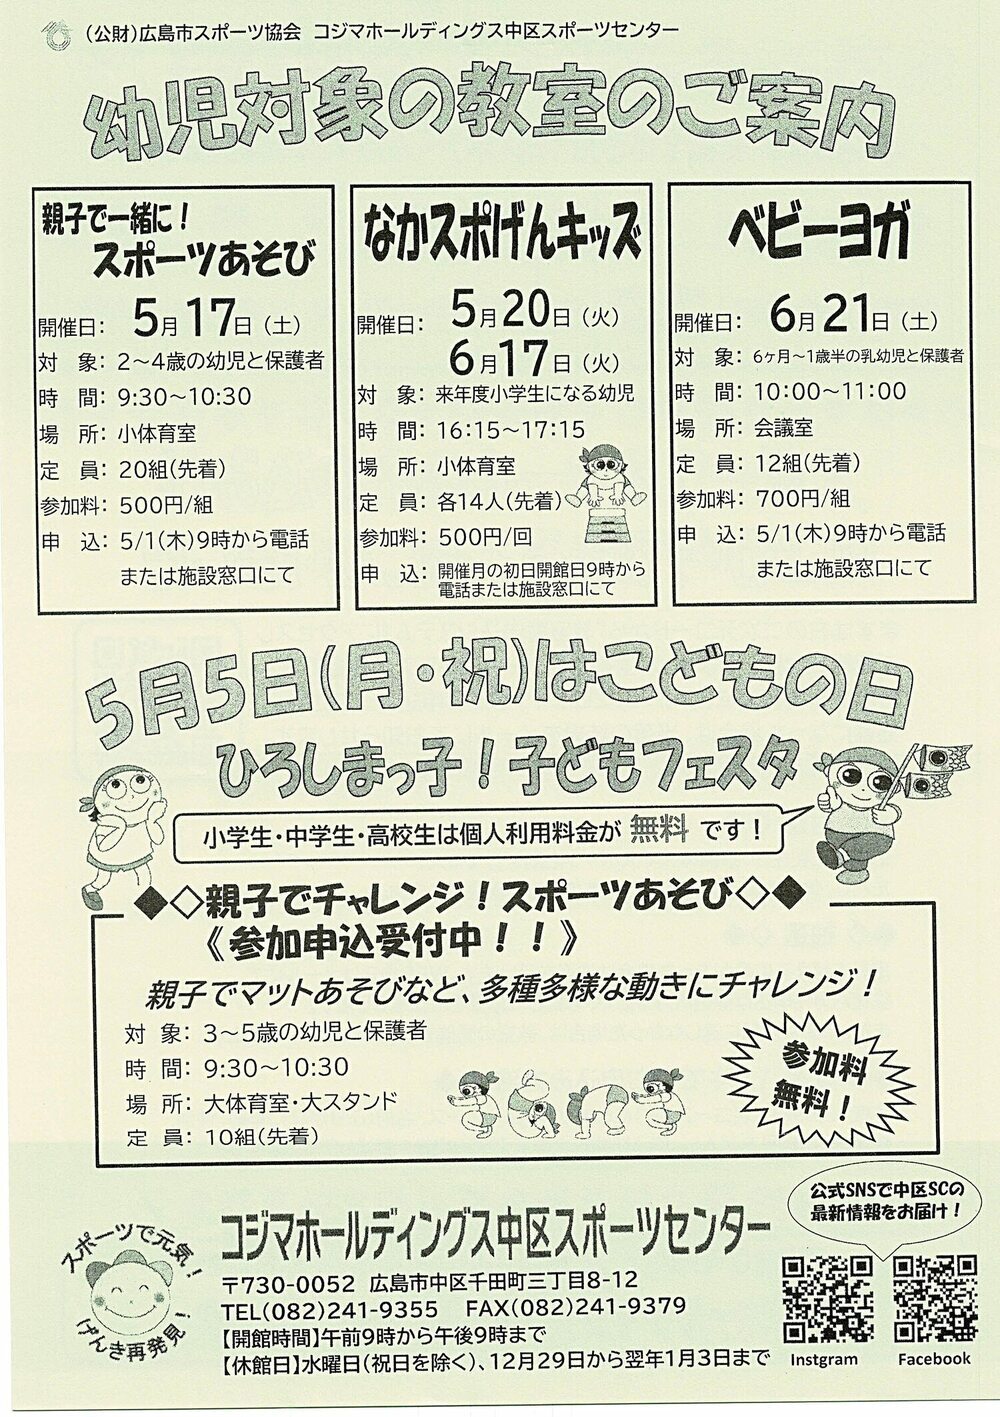 (公財)広島市スポーツ協会 コジマホールディングス中区スポーツセンター
幼児対象の教室のご案内
親子で一緒に！
スポーツあそび
開催日： 5月17日（土）
対 象：2～4歳の幼児と保護者
時 間：9:30～10:30
場 所：小体育室
定 員：20組(先着)
参加料：500円/組
申 込：5/1(木)9時から電話
または施設窓口にて
なかスポげんキッズ
開催日： 5月20日（火）
6月17日（火）
対 象：来年度小学生になる幼児
時 間：16:15～17:15
場 所：小体育室
定 員：各14人(先着)
参加料：500円/回
申 込：開催月の初日開館日9時から
電話または施設窓口にて
ベビーヨガ
開催日： 6月21日（土）
対 象：6ヶ月～1歳半の乳幼児と保護者
時 間：10:00～11:00
場 所：会議室
定 員：12組(先着)
参加料：700円/組
申 込：5/1(木)9時から電話
または施設窓口にて
5月5日(月・祝)はこどもの日
ひろしまっ子！子どもフェスタ
小学生・中学生・高校生は個人利用料金が 無料 です！
◆◇親子でチャレンジ！スポーツあそび◇◆
《参加申込受付中！！》
親子でマットあそびなど、多種多様な動きにチャレンジ！
対 象：3～5歳の幼児と保護者
時 間：9:30～10:30
場 所：大体育室・大スタンド
定 員：10組(先着)
参加料
無料！
公式SNSで中区SCの
最新情報をお届け！
スポーツで元気！
げんき再発見！
コジマホールディングス中区スポーツセンター
〒730-0052 広島市中区千田町三丁目8-12
TEL(082)241-9355 FAX(082)241-9379
【開館時間】午前9時から午後9時まで
【休館日】水曜日(祝日を除く)、12月29日から翌年1月3日まで
Instgram
Facebook